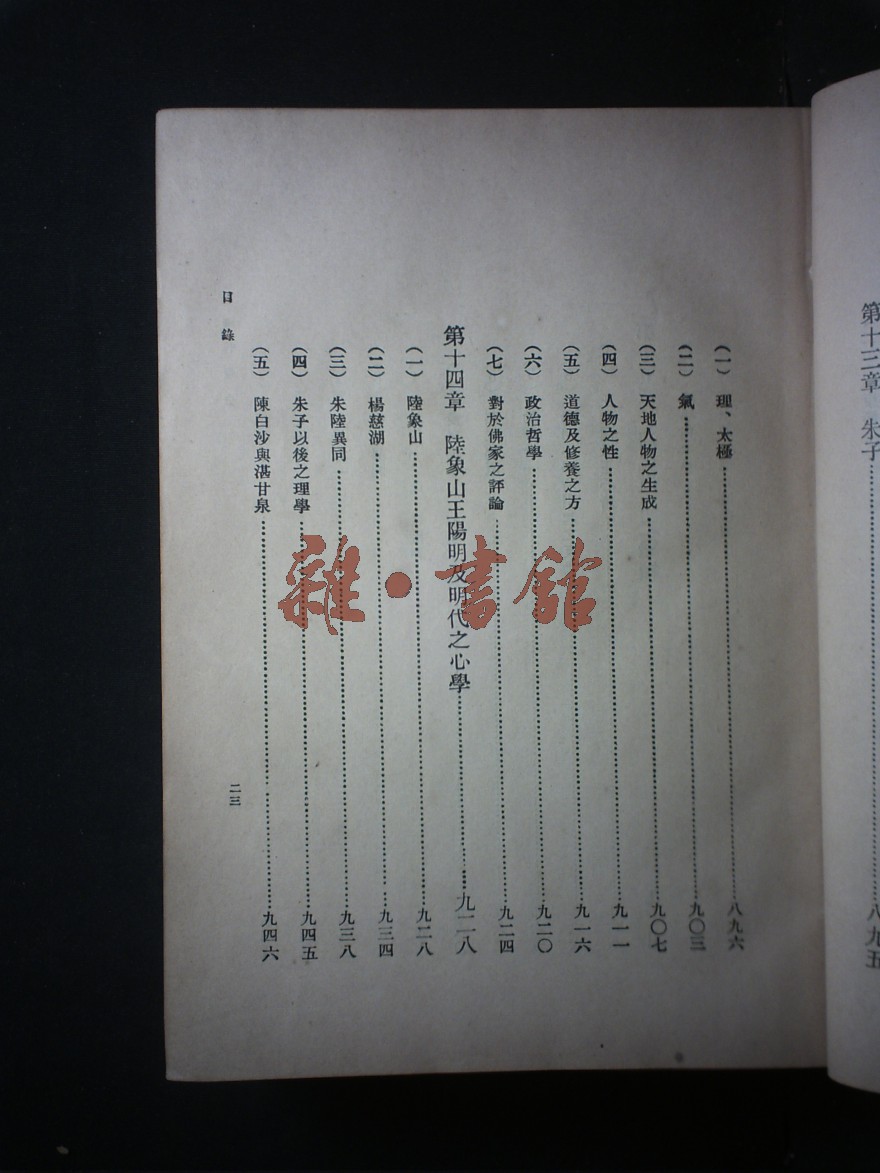 第十三章　朱子……八九五
（一）理、太極……八九六
（二）氣……九〇三
（三）天地人物之生成……九〇七
（四）人物之性……九一一
（五）道德及修養之方……九一六
（六）政治哲學……九二〇
（七）對於佛家之評論……九二四
第十四章　陸象山王陽明及明代之心學……九二八
（一）陸象山……九二八
（二）楊慈湖……九三四
（三）朱陸異同……九三八
（四）朱子以後之理學……九四五
（五）陳白沙與湛甘泉……九四六
目錄　二三
雜·書館